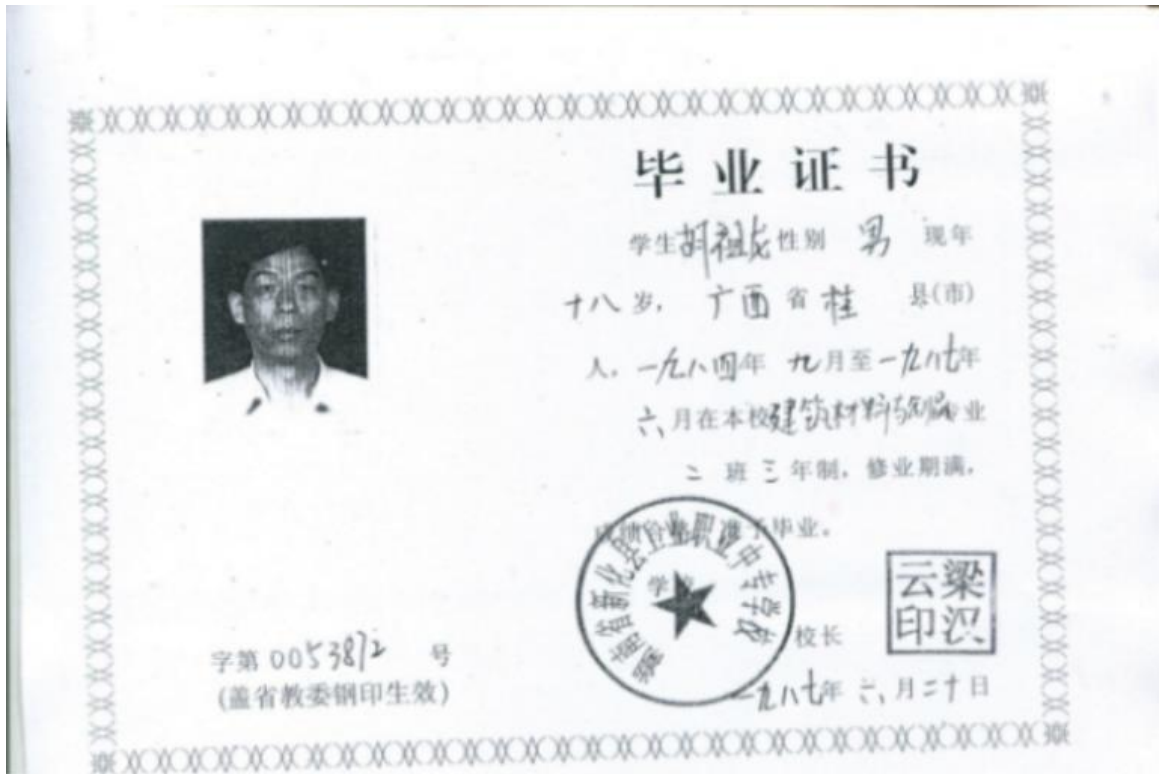 毕业证书
学生胡祖龙性别 男 现年
十八岁，广西省桂 县(市)
人，一九八四年 九月至一九八七年
六月在本校建筑材料与 专业
二 班三年制，修业期满，
成绩合格 准予毕业。
学校
湖南省新化县 职业中专学校
校长
梁识云印
一九八七年 六月二十日
字第 0053872 号
(盖省教委钢印生效)